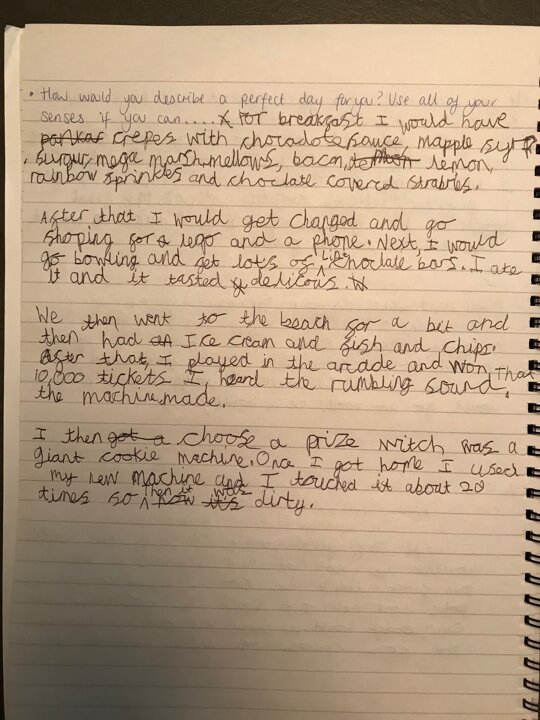 • How would you describe a perfect day for you? Use all of your
senses if you can..... For breakfast I would have
pankar crepes with chocadote sauce, mapple syrp
, surgur, mega marsh mellows, bacon, lemon,
rainbow sprinkles and choclate covered strabries.
After that I would get changed and go
shoping for a lego and a phone. Next, I would
go bowling and get lots of Lint choclate bars. I ate
it and it tasted delicous.
We then went to the beach for a bit and
then had an Ice cream and fish and chips.
After that, I played in the arcade and won that
10,000 tickets I heard the rumbling sound.
the machine made.
I then got a choose a prize witch was a
giant cookie machine. Once I got home I used
my new machine and I touched it about 20
times so then it was now it's dirty.